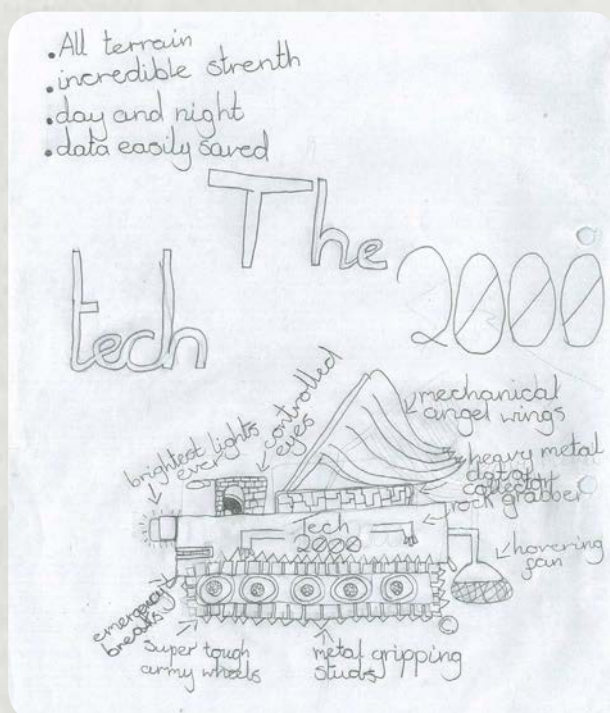 .All terrain
.incredible strenth
.day and night
.data easily saved
The
tech 2000
brightest lights
ever
controlled
eyes
mechanical
angel wings
heavy metal
data
collector
rock grabber
Tech
2000
hovering
fan
emergency
breaks
super tough
army wheels
metal gripping
studs